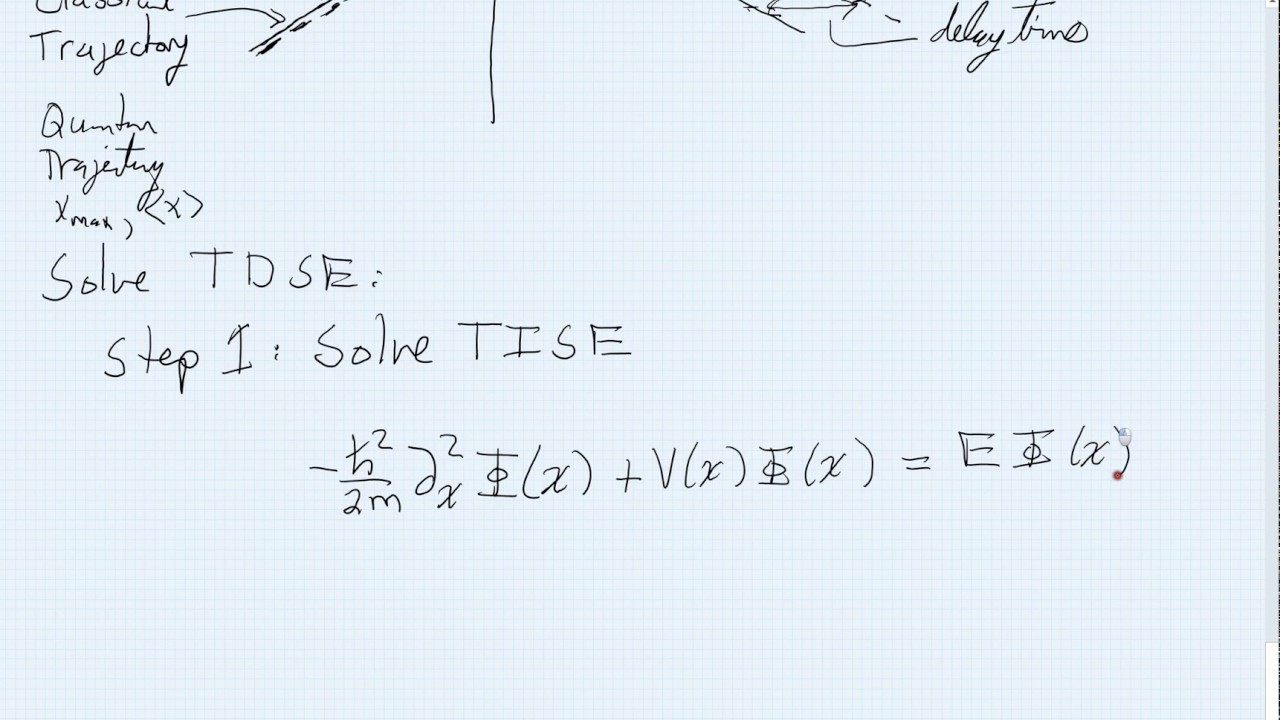 Classical
Trajectory
delay time
Quantum
Trajectory
x_max, ⟨x⟩
Solve TDSE:
Step 1: Solve TISE
-ℏ²/2m ∂ₓ² Φ(x) + V(x) Φ(x) = E Φ(x)